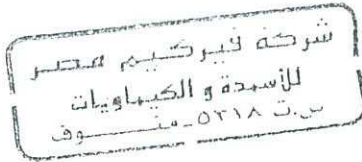 شركة فيركيم مصر
للأسمدة و الكيماويات
س.ت ٥٢١٨ - منوف